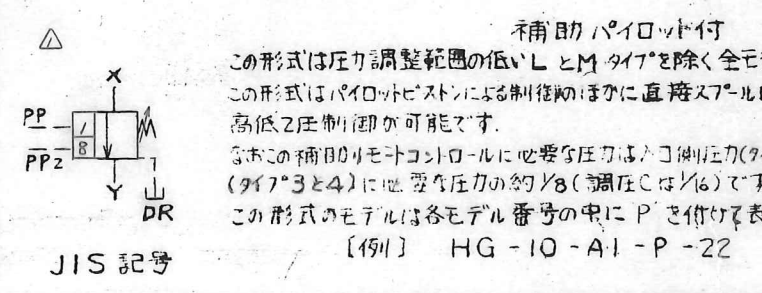 補助パイロット付
この形式は圧力調整範囲の低いLとMタイプを除く全モ
この形式はパイロットピストンによる制御のほかに直接スプール
高低2圧制御が可能です.
なおこの補助リモートコントロールに必要な圧力は入口側圧力(タイ
(タイプ3と4)に必要な圧力の約1/8(調圧Cは1/16)です
この形式のモデルは各モデル番号の中にPを付けて表
[例] HG-10-A1-P-22
1
X
PP
1
8
PP2
Y
DR
JIS記号